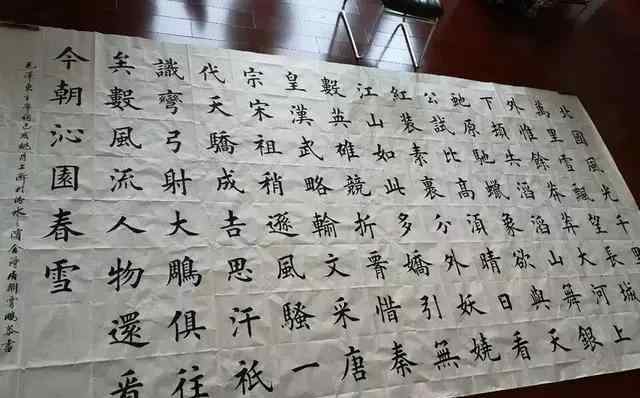 北國風光千里
萬里雪飄望長城
外惟餘莽莽大河上
下頓失滔滔山舞銀
虵原馳蠟象欲與天
公試比高須晴日看
紅裝素裹分外妖嬈
江山如此多嬌引無
數英雄競折腰惜秦
皇漢武略輸文采唐
宗宋祖稍遜風騷一
代天驕成吉思汗祗
識彎弓射大鵰俱往
矣數風流人物還看
今朝沁園春雪
毛澤東主席詞